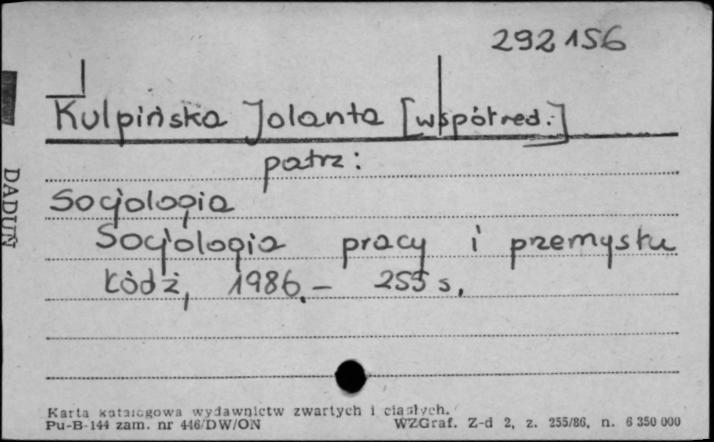 292156
Kulpińska Jolanta [współred.]
patrz:
Socjologia
Socjologia pracy i przemysłu
Łódź, 1986.- 255 s.
DADUŃ
Karta katalogowa wydawnictw zwartych i ciągłych.
Pu-B-144 zam. nr 446/DW/ON WZGraf. Z-d 2, z. 255/86, n. 6 350 000